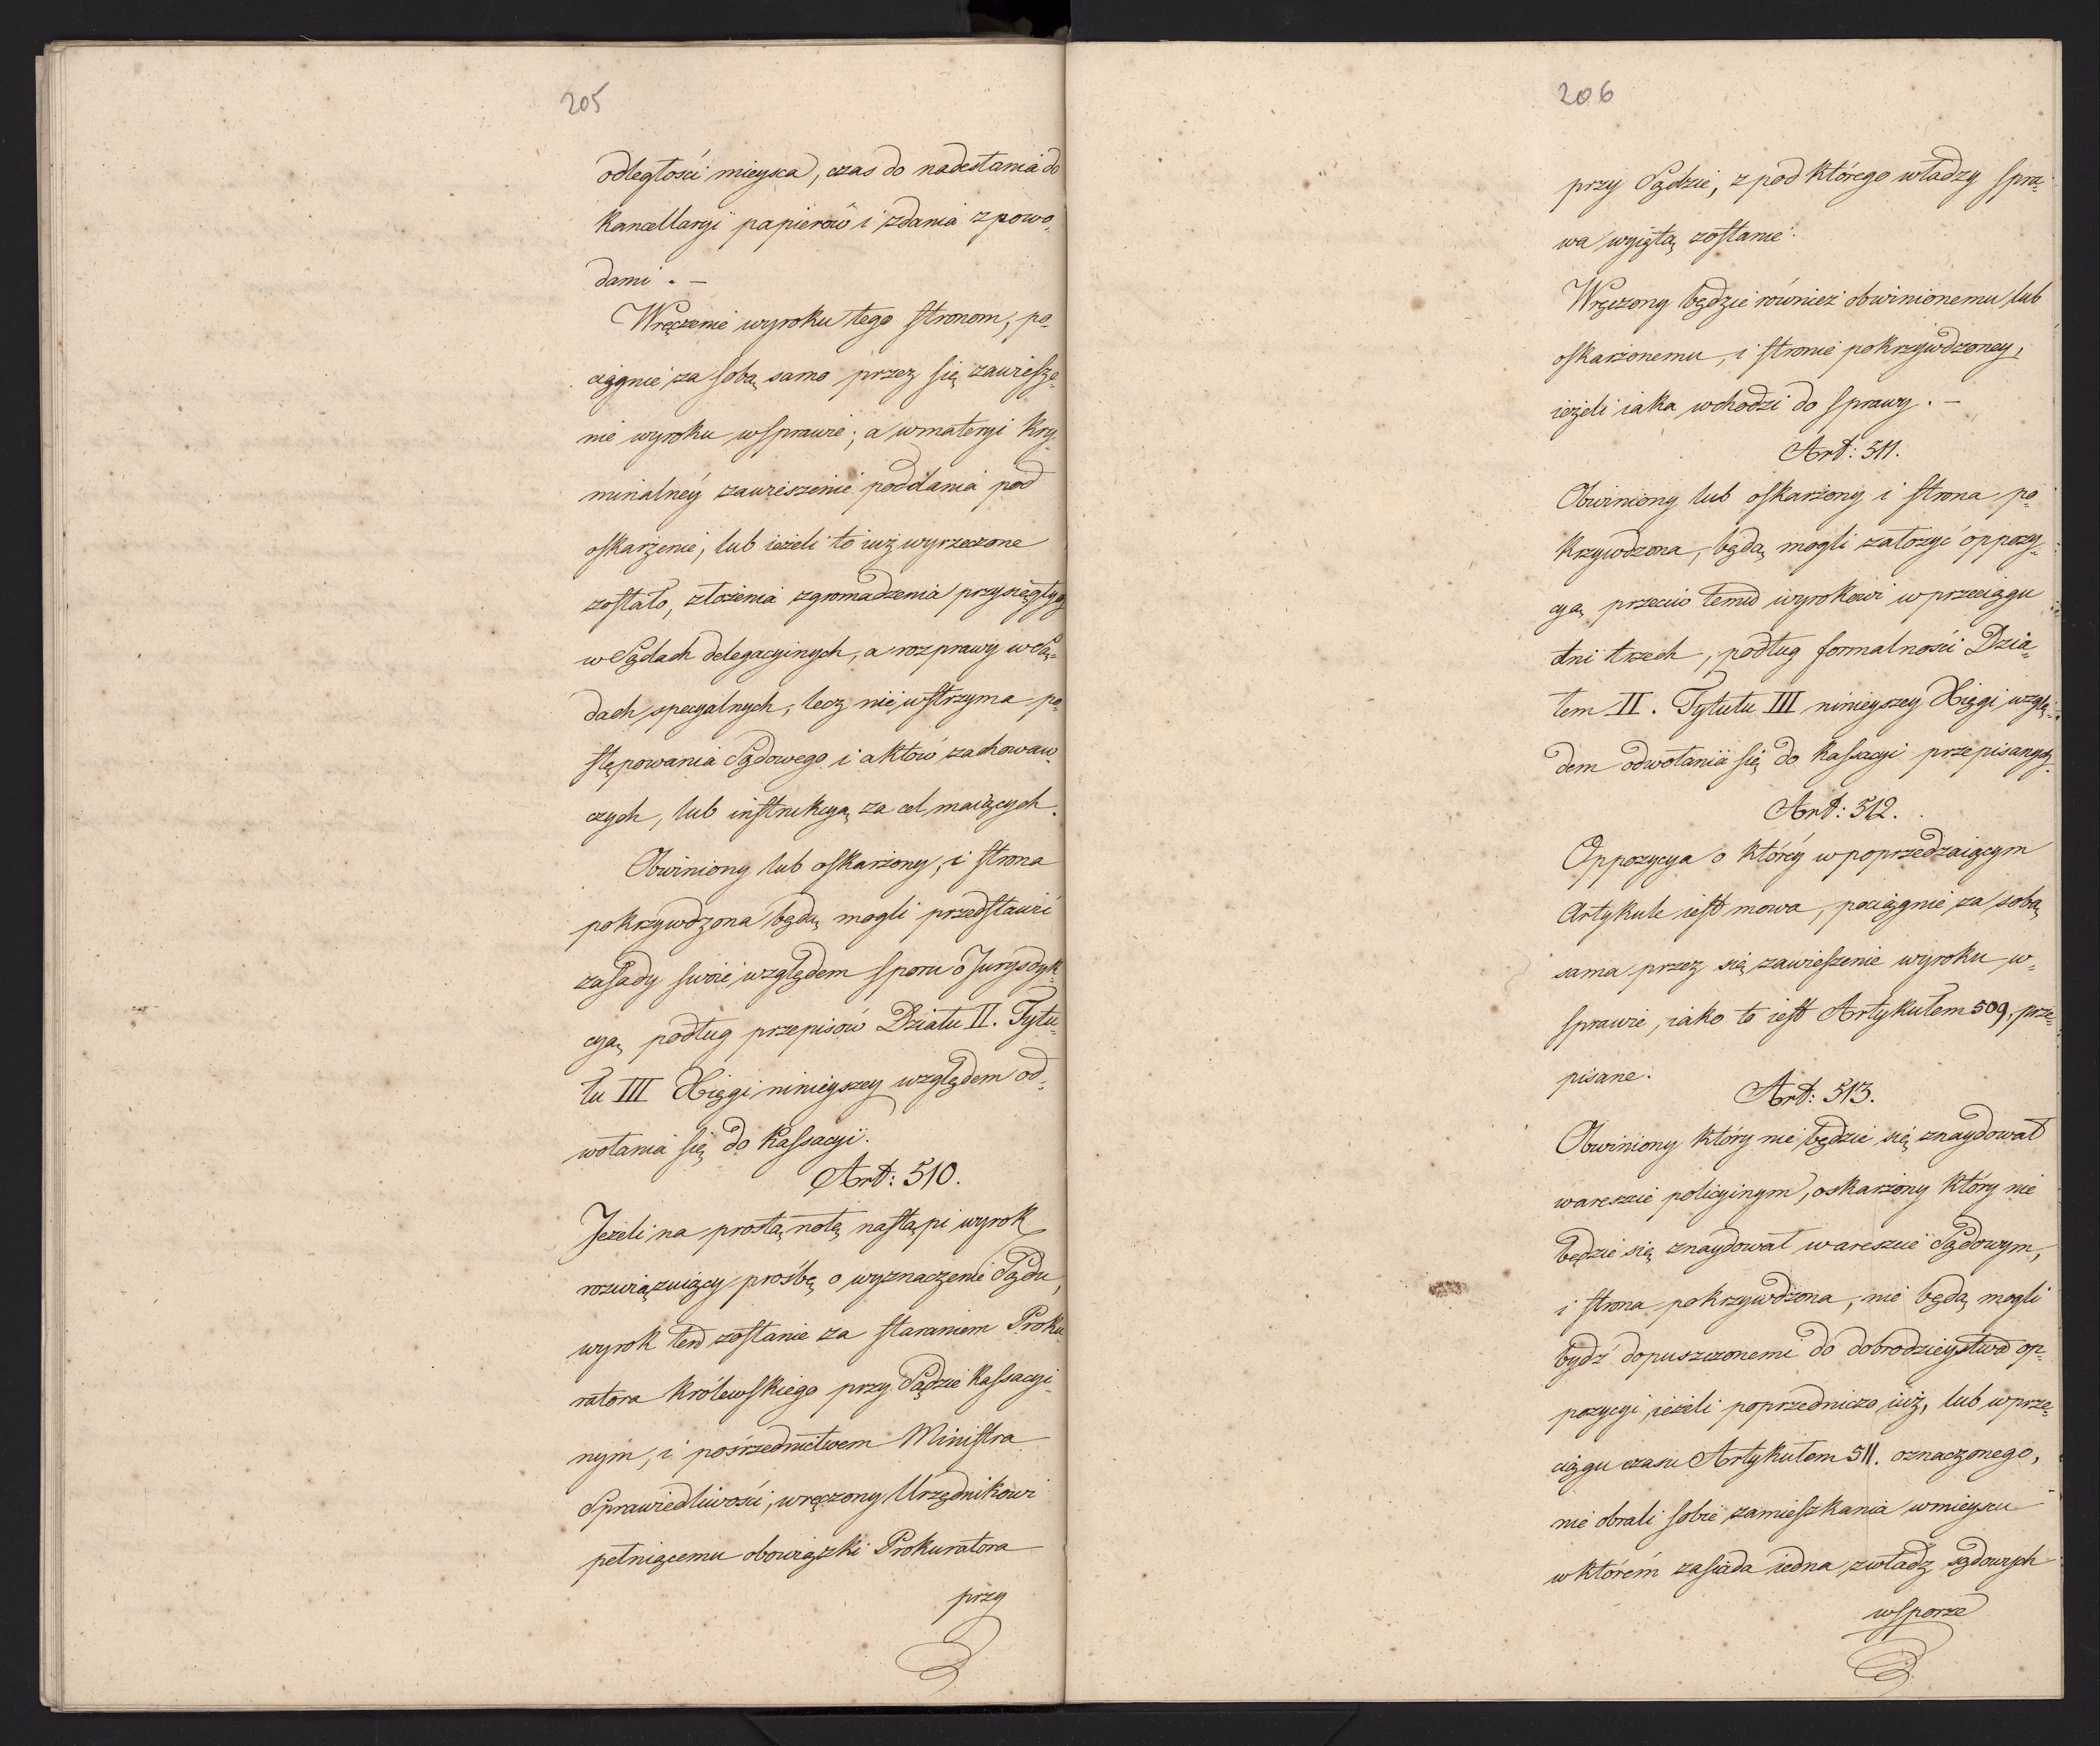 205
odległości mieysca, czas do nadesłania do
kancellaryi papierów i zdania z powo„
dami . –
Wręczenie wyroku tego stronom, po„
ciągnie za sobą samo przez się zawiesze„
nie wyroku w sprawie; a w materyi kry„
minalnéy zawieszenie poddania pod
oskarżenie, lub ieżeli to iuż wyrzeczone
zostało, złożenia zgromadzenia przysięgłych
w Sądach delegacyinych, a rozprawy w Są„
dach specyalnych, lecz nie wstrzyma po„
stępowania Sądowego i aktów zachowaw„
czych, lub instrukcyą za cel maiących.
Obwiniony lub oskarżony, i strona
pokrzywdzona będą mogli przedstawić
zasady swoie względem sporu o Jurysdyk„
cyą podług przepisów Działu II. Tytu„
łu III Xięgi ninieyszey względem od„
wołania się do kassacyi.
Art: 510.
Jeżeli na prostą notę nastąpi wyrok
rozwiązuiący prośbę o wyznaczenie Sądu,
wyrok ten zostanie za staraniem Proku„
ratora Królewskiego przy Sądzie kassacyi„
nym, i pośrzednictwem Ministra
Sprawiedliwości, wręczony Urzędnikowi
pełniącemu obowiązki Prokuratora
przy
206
przy Sądzie, z pod którego władzy spra„
wa wyiętą zostanie.
Wręczony będzie również obwinionemu lub
oskarżonemu, i stronie pokrzywdzoney,
ieżeli iaka wchodzi do sprawy. –
Art: 511.
Obwiniony lub oskarżony i strona po„
krzywdzona, będą mogli założyć oppozy„
cyą przeciw temu wyrokowi w przeciągu
dni trzech, podług formalności Dzia„
łem II. Tytułu III ninieyszey Xięgi wzglę„
dem odwołania się do kassacyi przepisanych.
Art: 512.
Oppozycya o któréy w poprzedzaiącym
Artykule iest mowa, pociągnie za sobą
sama przez się zawieszenie wyroku w„
sprawie, iako to iest Artykułem 509. prze„
pisane.
Art: 513.
Obwiniony który nie będzie się znaydował
w areszcie policyinym, oskarżony który nie
będzie się znaydował w areszcie Sądowym,
i strona pokrzywdzona, nie będą mogli
bydź dopuszczonemi do dobrodzieystwa op„
pozycyi, ieżeli poprzedniczo iuż, lub w prze„
ciągu czasu Artykułem 511. oznaczonego,
nie obrali sobie zamieszkania w mieyscu
w którém zasiada iedna z władz sądowych
w sporze